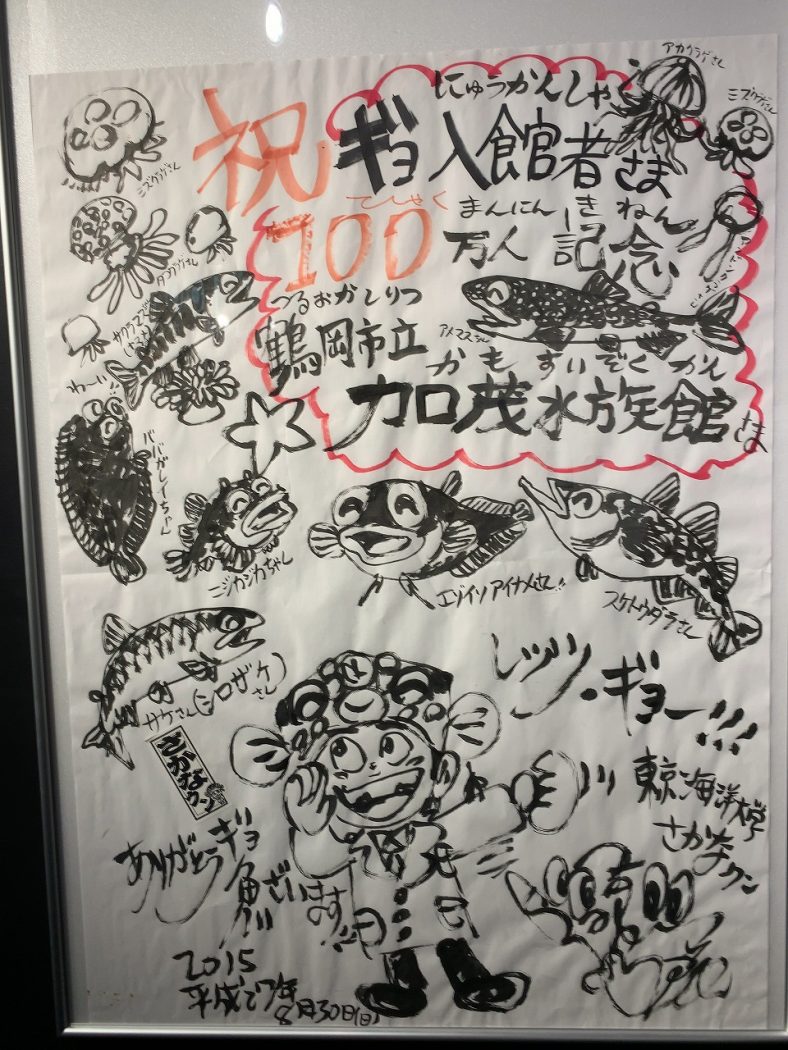 アカクラゲさん
にゅうかんしゃ
祝 ギョ入館者さま
ミズクラゲさん
ミズクラゲさん
てしゃく まんにん きねん
100万人 記念
タコクラゲさん
つるおかしりつ
サクラマス
アメマスちゃん
鶴岡市立
かもすいぞくかん
加茂水族館さま
わーい!!
ババガレイちゃん
ニジカジカちゃん
エゾイソアイナメさん!!
スケトウダラさん
サケさん(シロザケさん)
さかなクン
レッツ・ギョー!!!
東京海洋大学
さかなクン
ありがとうギョ
魚ざいます!!
2015
平成27年
8月30日(日)